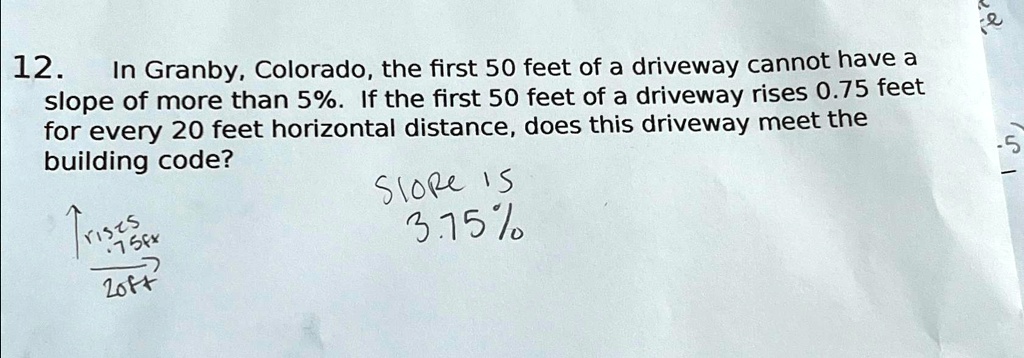 12. In Granby, Colorado, the first 50 feet of a driveway cannot have a
slope of more than 5%. If the first 50 feet of a driveway rises 0.75 feet
for every 20 feet horizontal distance, does this driveway meet the
building code?
Slope is
3.75%
rises
.75ft
20ft
-5